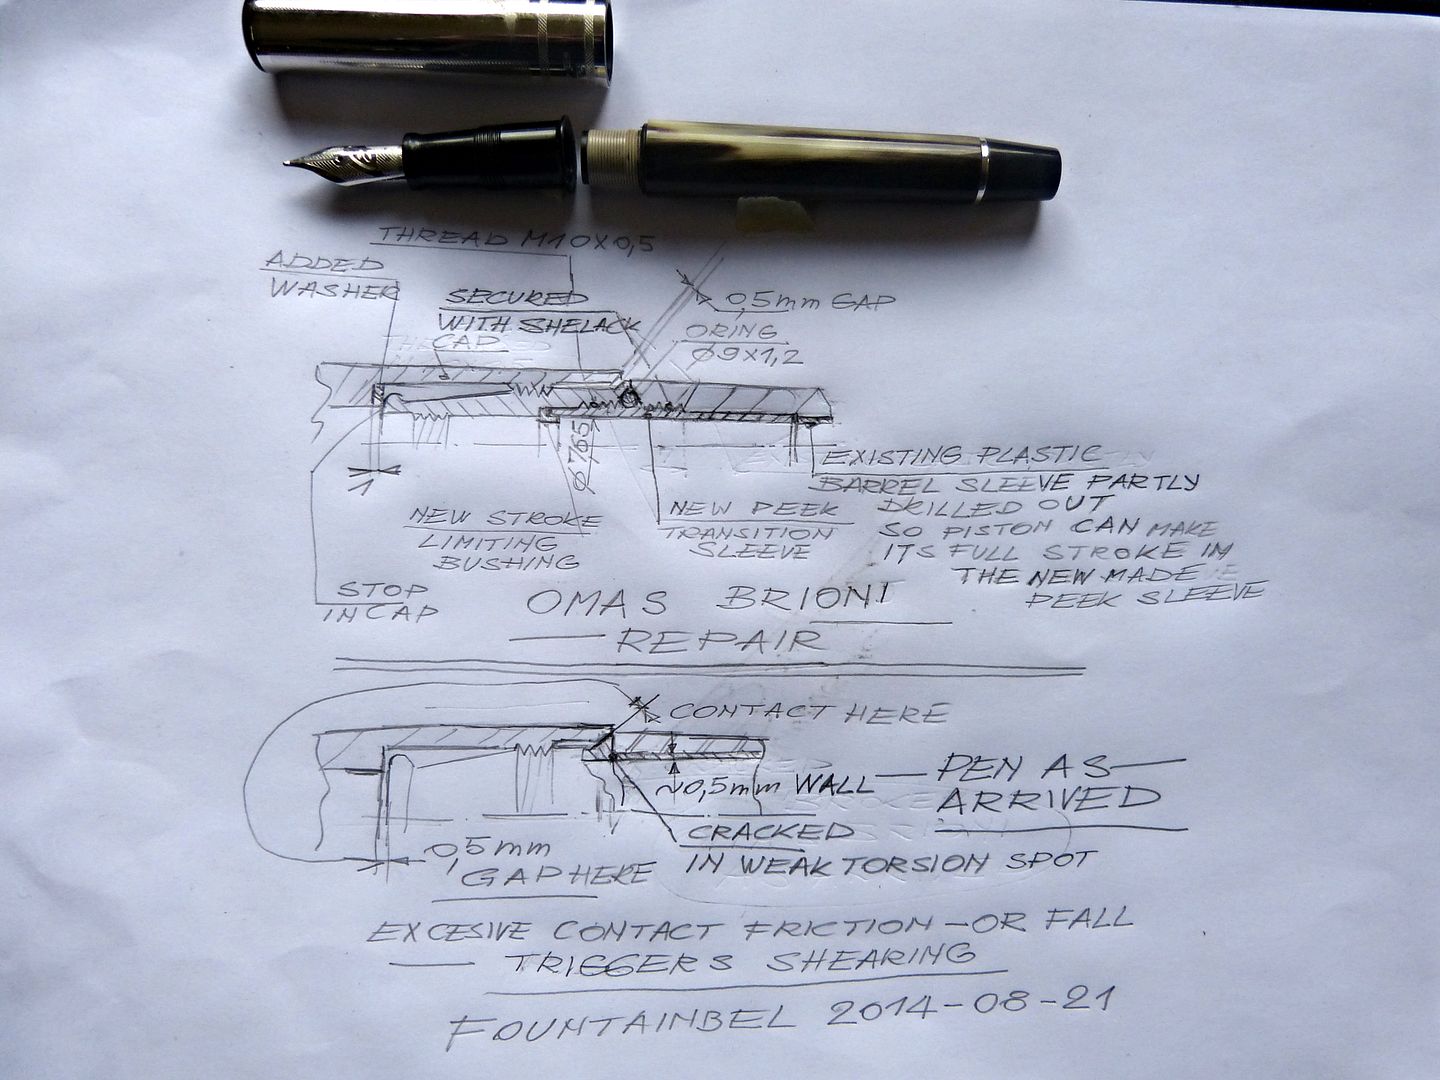 THREAD M10X0,5
ADDED
WASHER
SECURED
WITH SHELACK
CAP
0,5mm GAP
ORING
Ø9X1,2
1
Ø7,65
EXISTING PLASTIC
BARREL SLEEVE PARTLY
DRILLED OUT
SO PISTON CAN MAKE
ITS FULL STROKE IN
THE NEW MADE
PEEK SLEEVE
NEW STROKE
LIMITING
BUSHING
NEW PEEK
TRANSITION
SLEEVE
STOP
IN CAP
OMAS BRIONI
REPAIR
CONTACT HERE
~0,5mm WALL
PEN AS
ARRIVED
CRACKED
IN WEAK TORSION SPOT
0,5mm
GAP HERE
EXCESIVE CONTACT FRICTION - OR FALL
TRIGGERS SHEARING
FOUNTAINBEL 2014-08-21